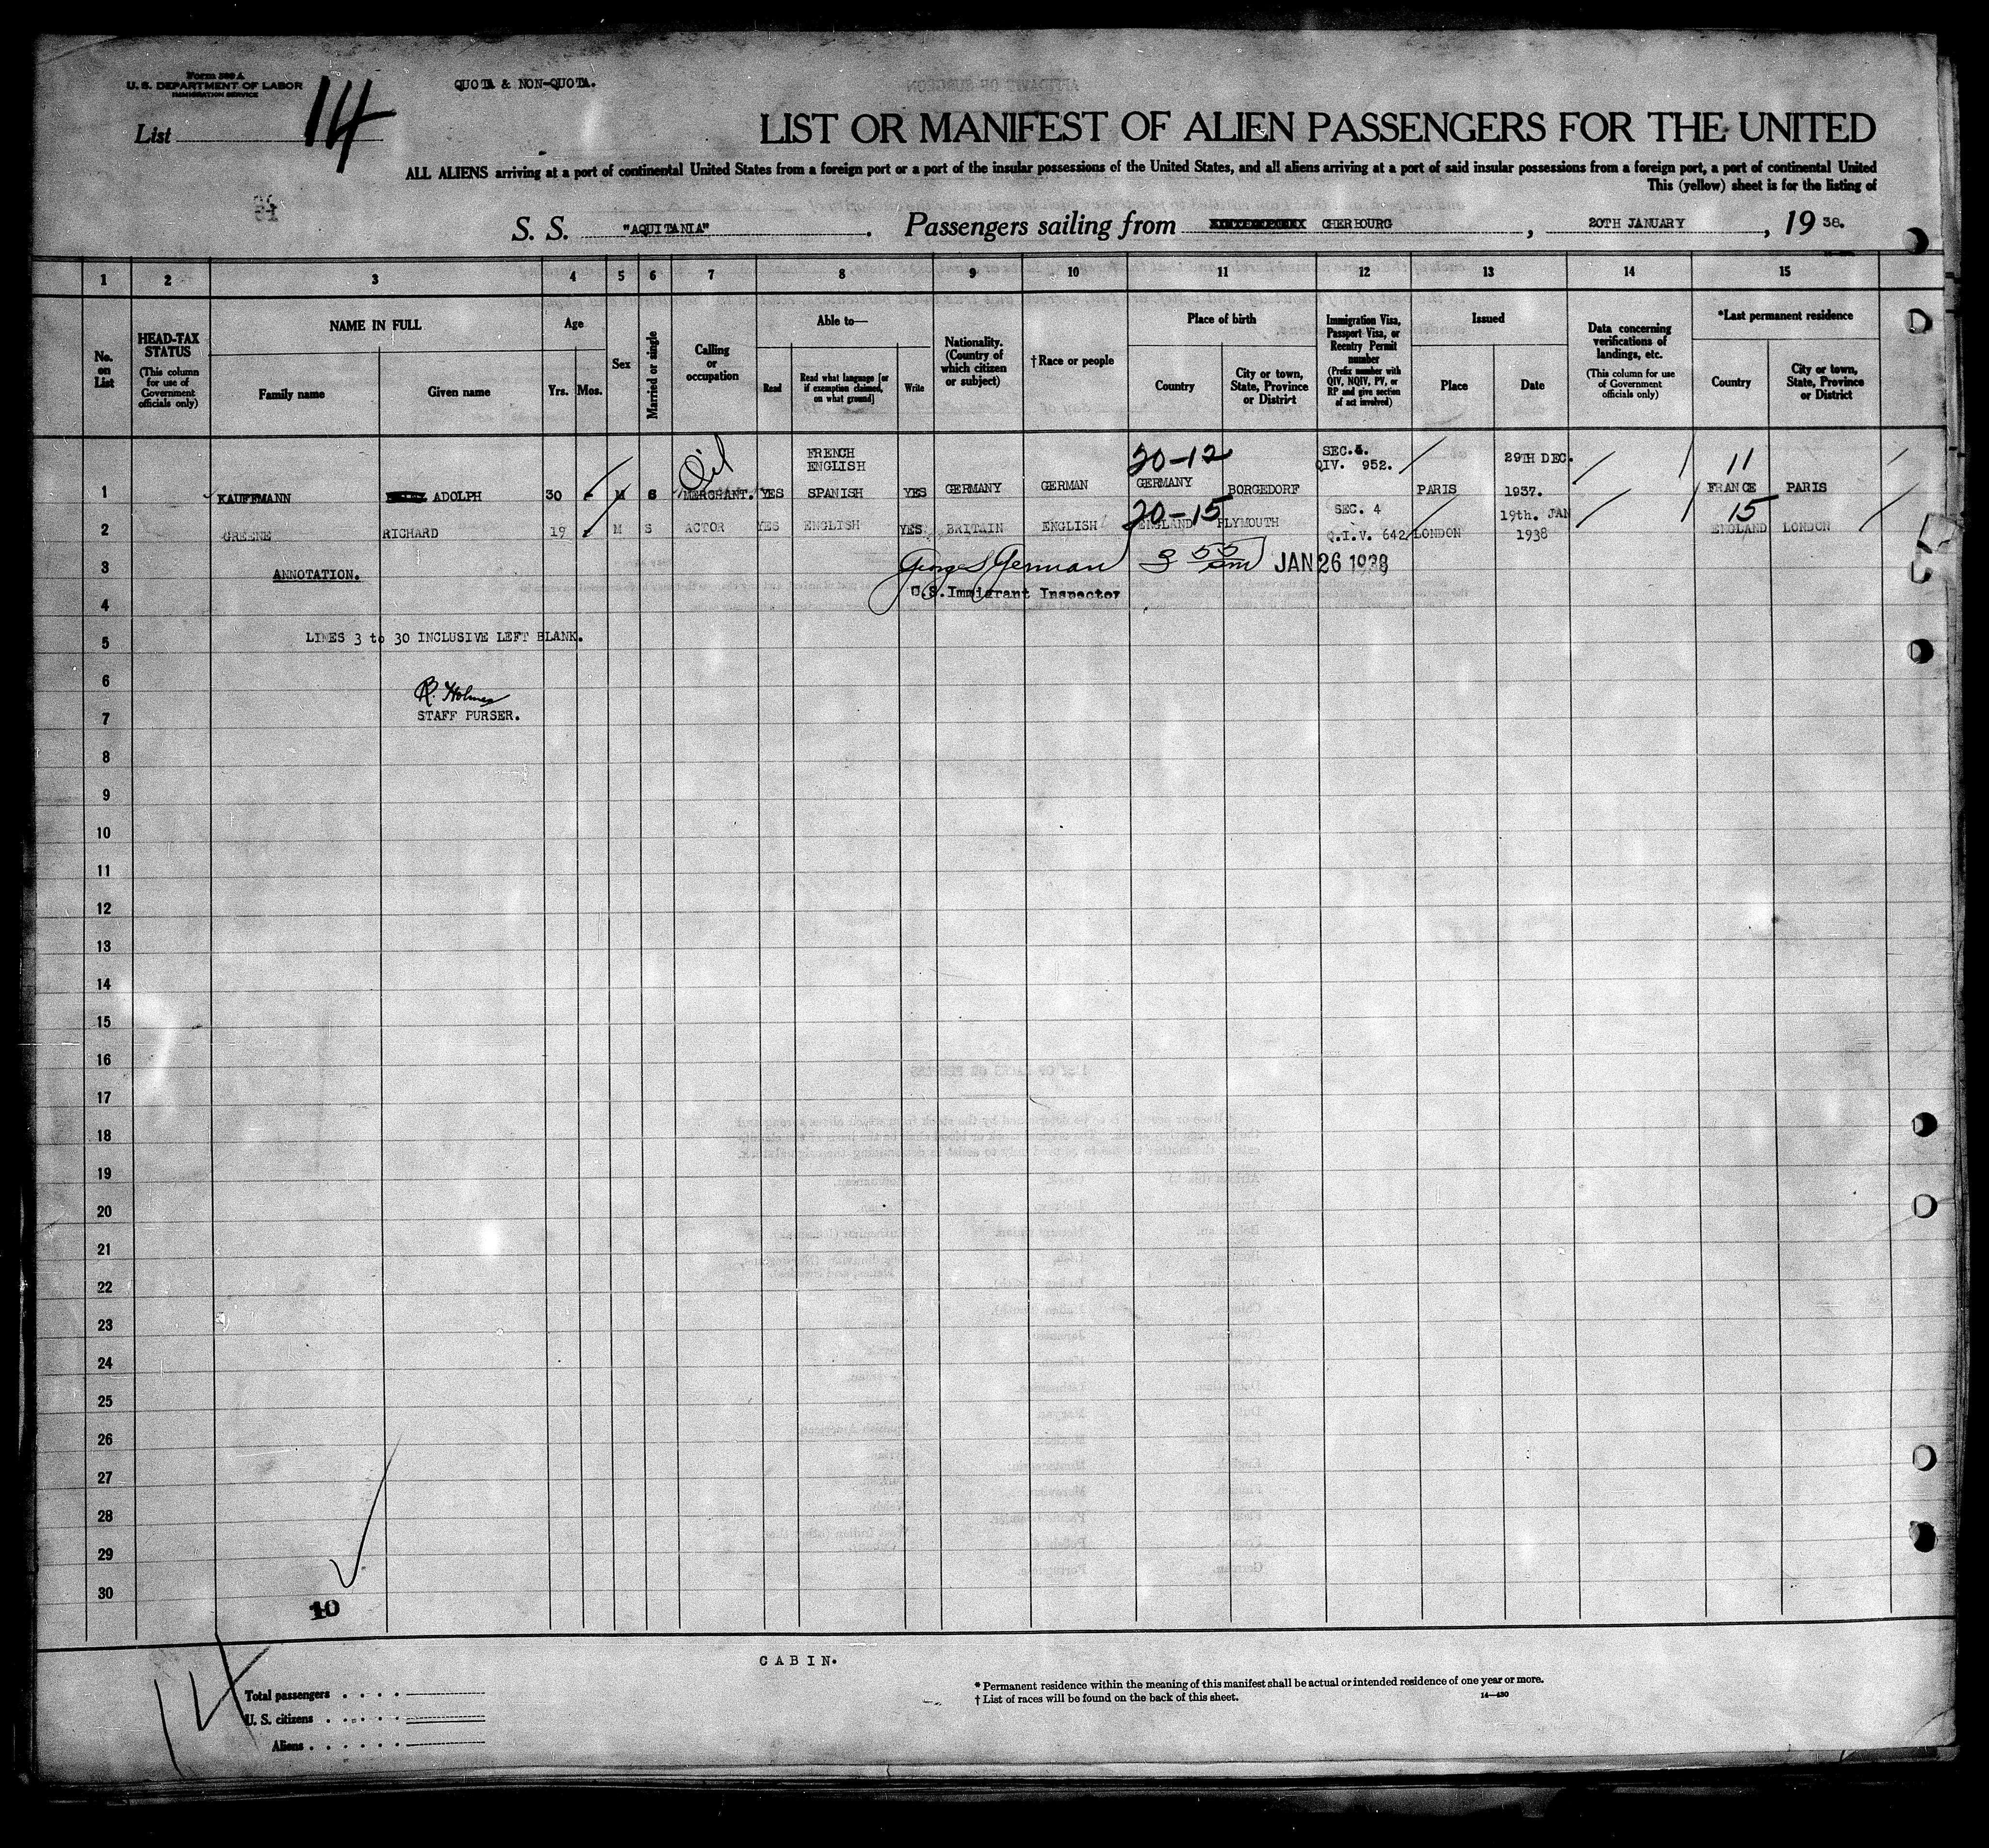 Form 500 A
U. S. DEPARTMENT OF LABOR
IMMIGRATION SERVICE
QUOTA & NON-QUOTA.
List 14
LIST OR MANIFEST OF ALIEN PASSENGERS FOR THE UNITED
ALL ALIENS arriving at a port of continental United States from a foreign port or a port of the insular possessions of the United States, and all aliens arriving at a port of said insular possessions from a foreign port, a port of continental United
This (yellow) sheet is for the listing of
S. S. "AQUITANIA". Passengers sailing from CHERBOURG, 20TH JANUARY, 1938.
1 2 3 4 5 6 7 8 9 10 11 12 13 14 15
No. on List
HEAD-TAX STATUS
(This column for use of Government officials only)
NAME IN FULL
Family name
Given name
Age
Yrs.
Mos.
Sex
Married or single
Calling or occupation
Able to—
Read
Read what language [or if exemption claimed, on what ground]
Write
Nationality. (Country of which citizen or subject)
†Race or people
Place of birth
Country
City or town, State, Province or District
Immigration Visa, Passport Visa, or Reentry Permit number
(Prefix number with QIV, NQIV, PV, or RP and give section of act involved)
Issued
Place
Date
Data concerning verifications of landings, etc.
(This column for use of Government officials only)
*Last permanent residence
Country
City or town, State, Province or District
Oil
FRENCH
ENGLISH
20-12
SEC.
QIV. 952.
29TH DEC.
11
1 KAUFFMANN ADOLPH 30 M S MERCHANT. YES SPANISH YES GERMANY GERMAN GERMANY BORGEDORF PARIS 1937. FRANCE PARIS
20-15
SEC. 4
19th. JAN
15
2 GREENE RICHARD 19 M S ACTOR YES ENGLISH YES BRITAIN ENGLISH ENGLAND PLYMOUTH Q.I.V. 642 LONDON 1938 ENGLAND LONDON
3 ANNOTATION. George S German 3 55 pm JAN 26 1938
4 U.S. Immigrant Inspector
5 LINES 3 to 30 INCLUSIVE LEFT BLANK.
6 R. Holmes
7 STAFF PURSER.
8
9
10
11
12
13
14
15
16
17
18
19
20
21
22
23
24
25
26
27
28
29
30
10
14
CABIN.
Total passengers
U. S. citizens
Aliens
* Permanent residence within the meaning of this manifest shall be actual or intended residence of one year or more.
† List of races will be found on the back of this sheet.
14—430